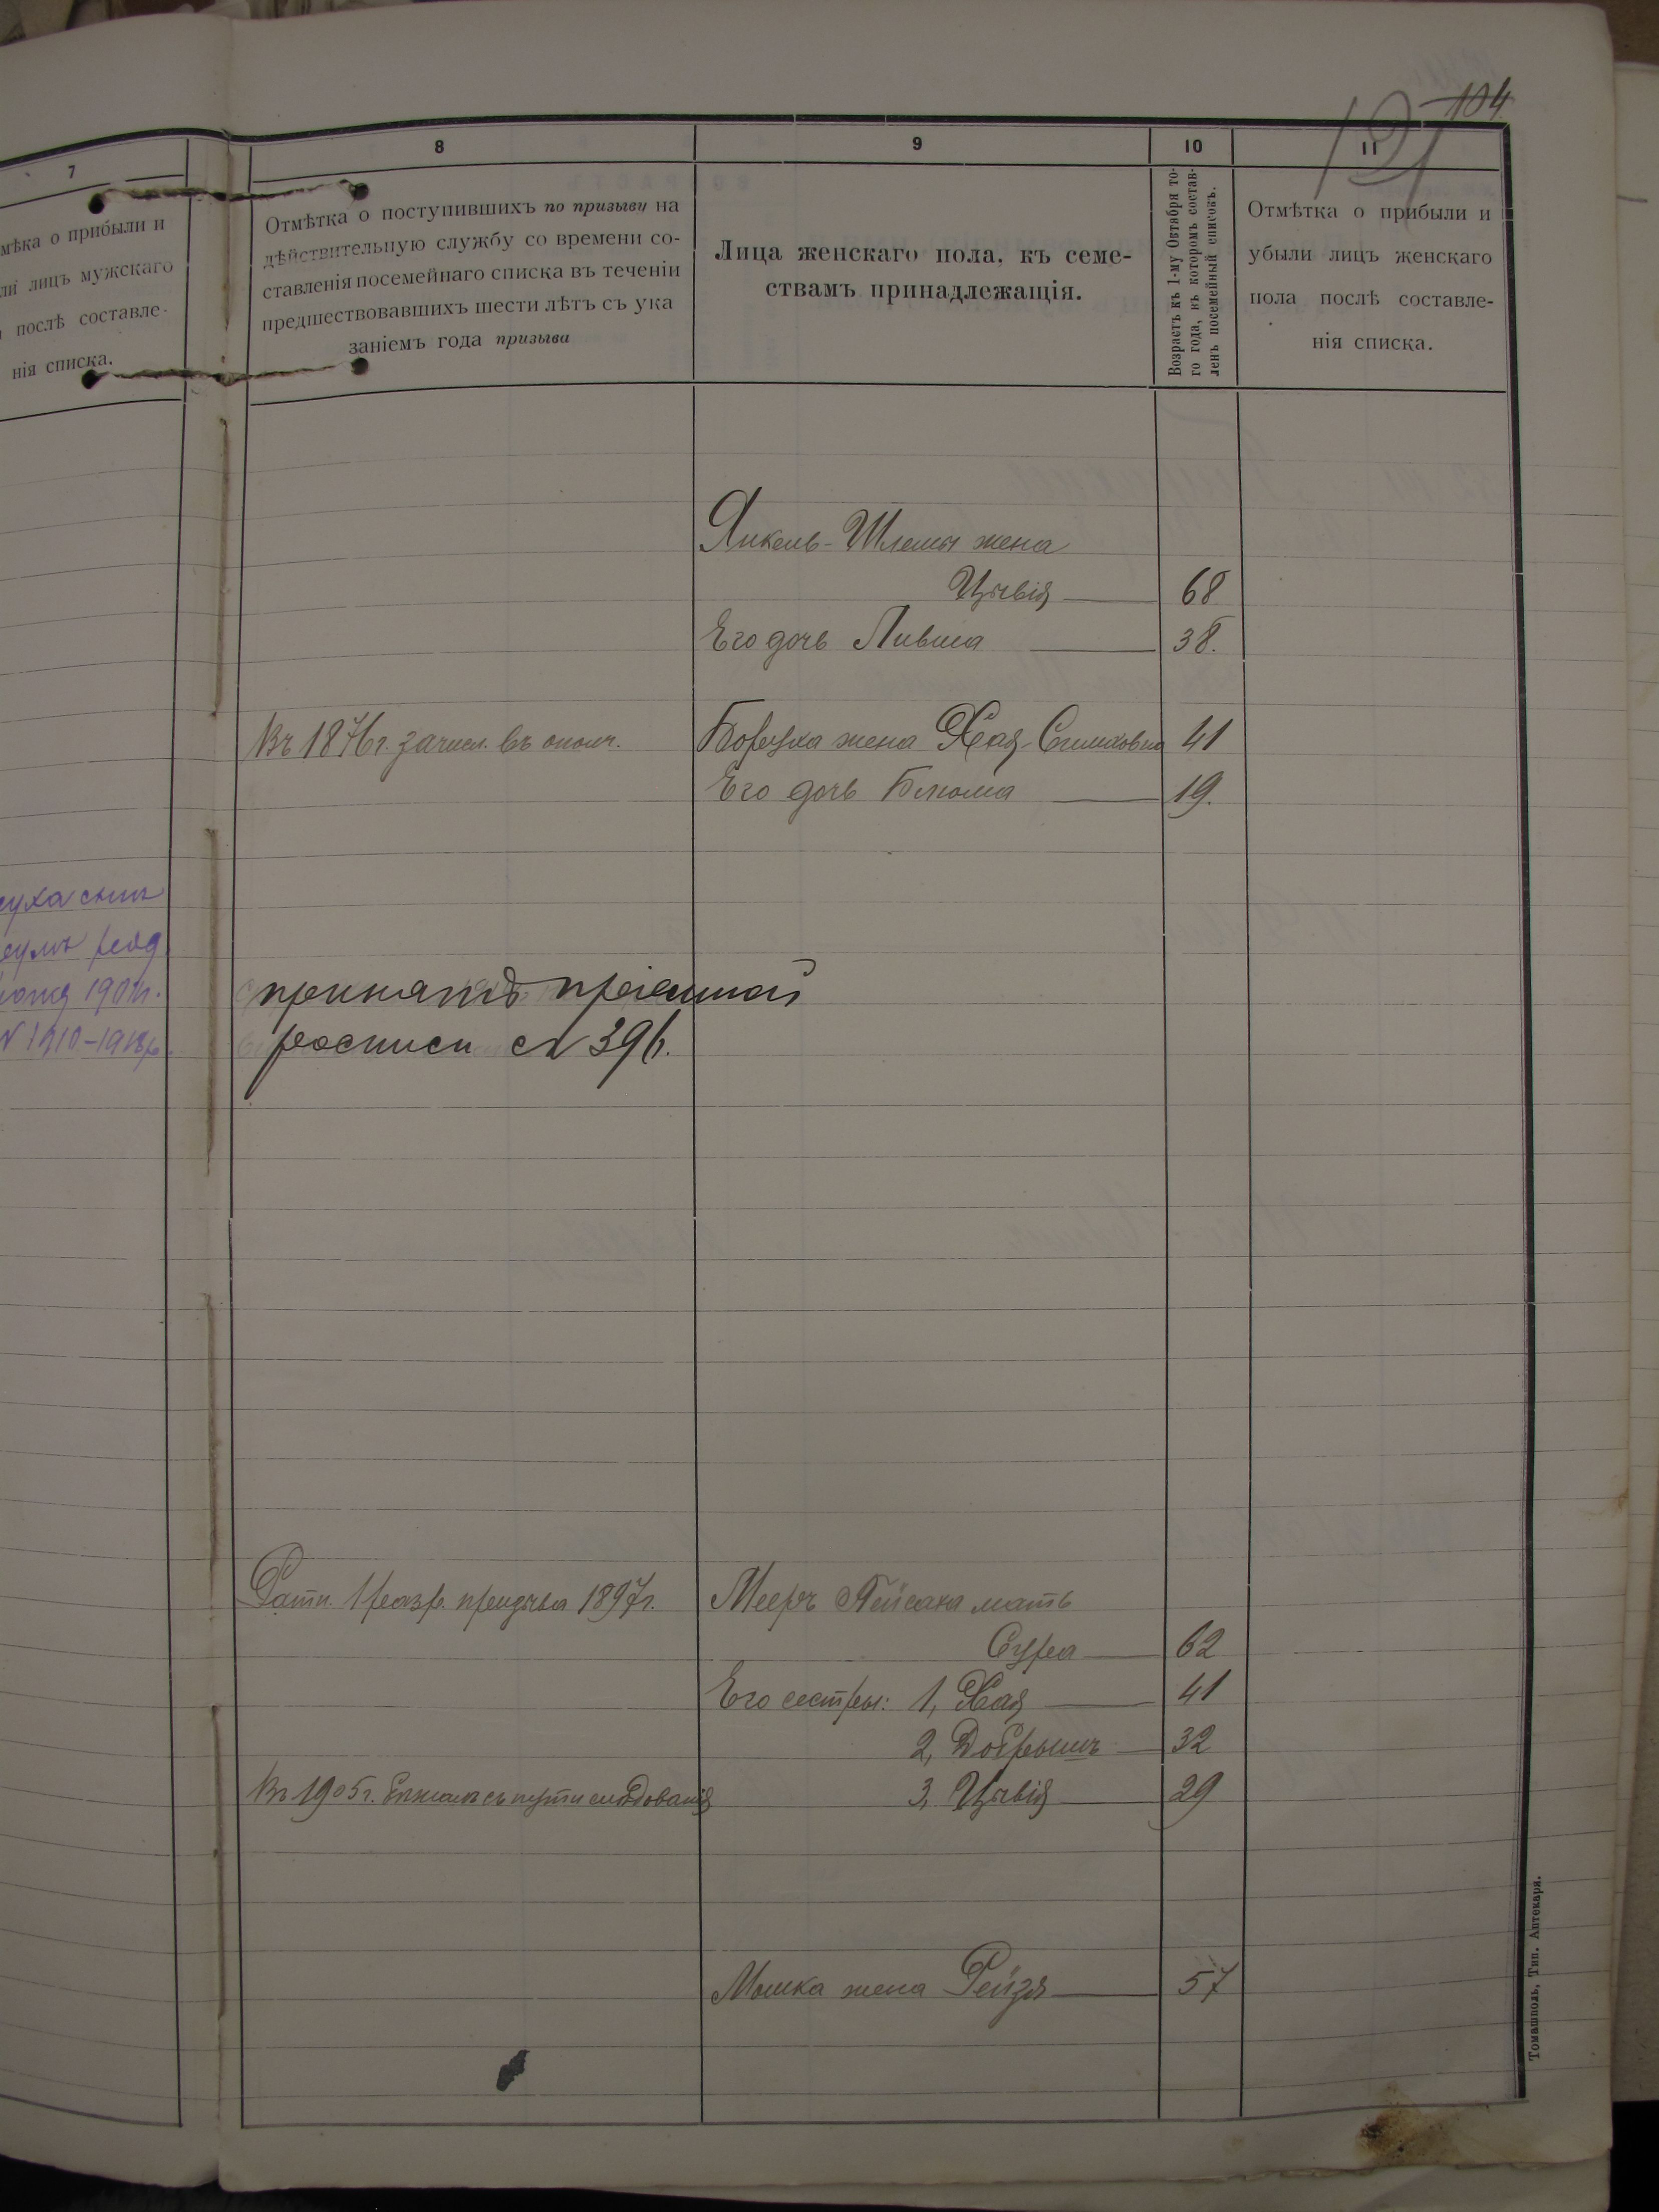 104
121
7
мѣка о прибыли и
ли лицъ мужскаго
послѣ составле-
нія списка.
8
Отмѣтка о поступившихъ по призыву на
дѣйствительную службу со времени со-
ставленія посемейнаго списка въ теченіи
предшествовавшихъ шести лѣтъ съ ука
заніемъ года призыва
9
Лица женскаго пола, къ семе-
ствамъ принадлежащія.
10
Возрастъ къ 1-му Октября то-
го года, къ которомъ состав-
ленъ посемейный списокъ.
11
Отмѣтка о прибыли и
убыли лицъ женскаго
пола послѣ составле-
нія списка.
Янкель-Шлемы жена
Цывія 68
Его дочь Ливша 38.
Въ 1876 г. зачисл. въ ополч. Боруха жена Хая-Симховна 41
Его дочь Блюма 19.
уха сынъ
1910-19
принятъ пріемной
росписи № 396.
Ратн. 1 разр. призыва 1897 г. Мееръ Пейсаха мать
Сура 62
Его сестры: 1, Хая 41
2, Добрышъ 32
Въ 1905 г. бѣжалъ съ пути слѣдованія 3, Цывія 29
Мошка жена Рейзя 57
Томашполь, Тип. Аптекаря.